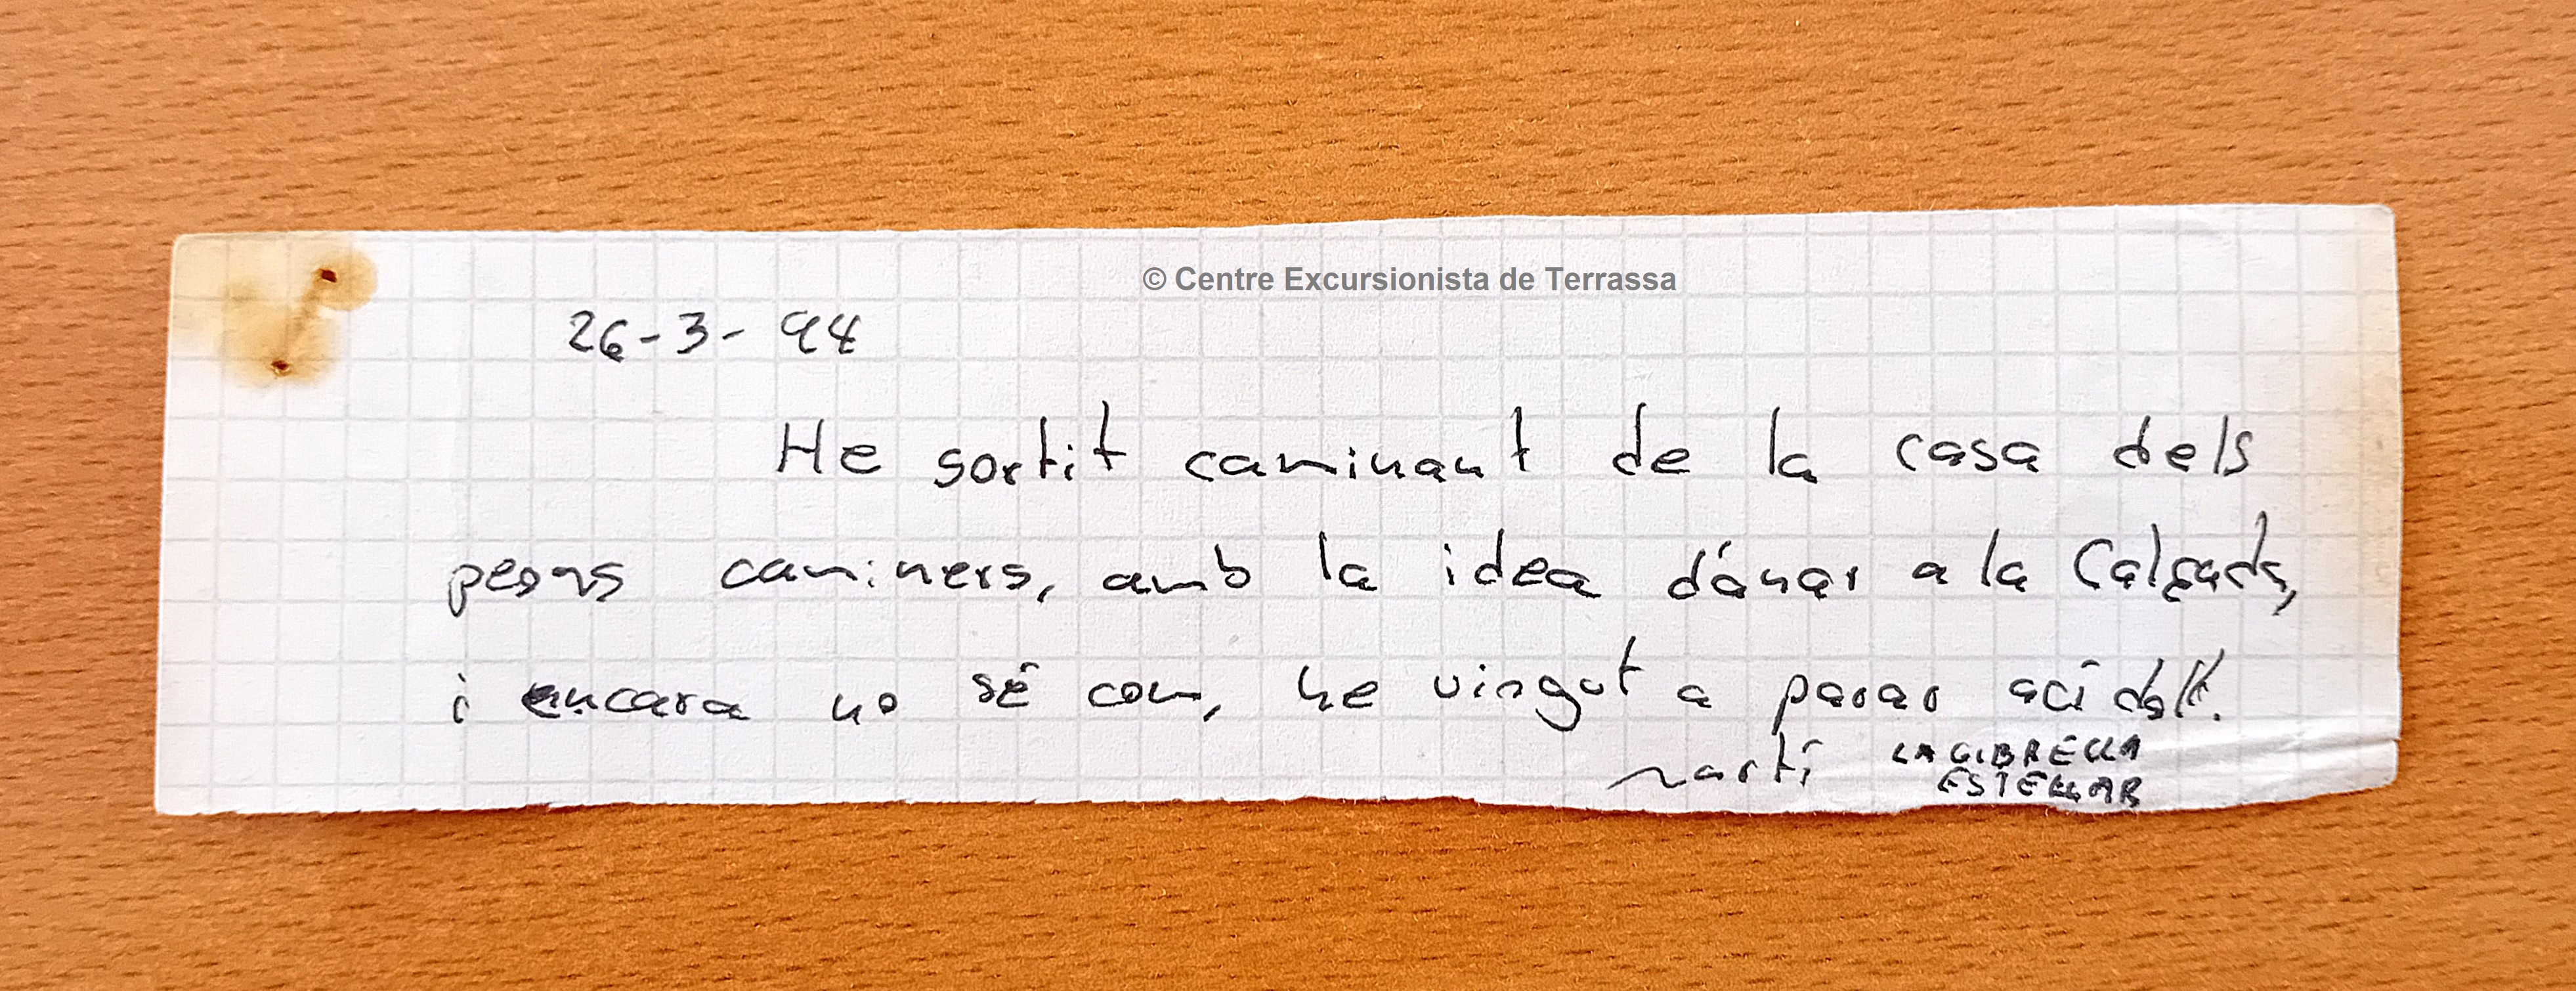 © Centre Excursionista de Terrassa
26-3-94
He sortit caminant de la casa dels
peons caminers, amb la idea d'anar a la Calçada,
i encara no sé com, he vingut a parar ací dalt.
Martí LA GIBRELLA
ESTELLAR